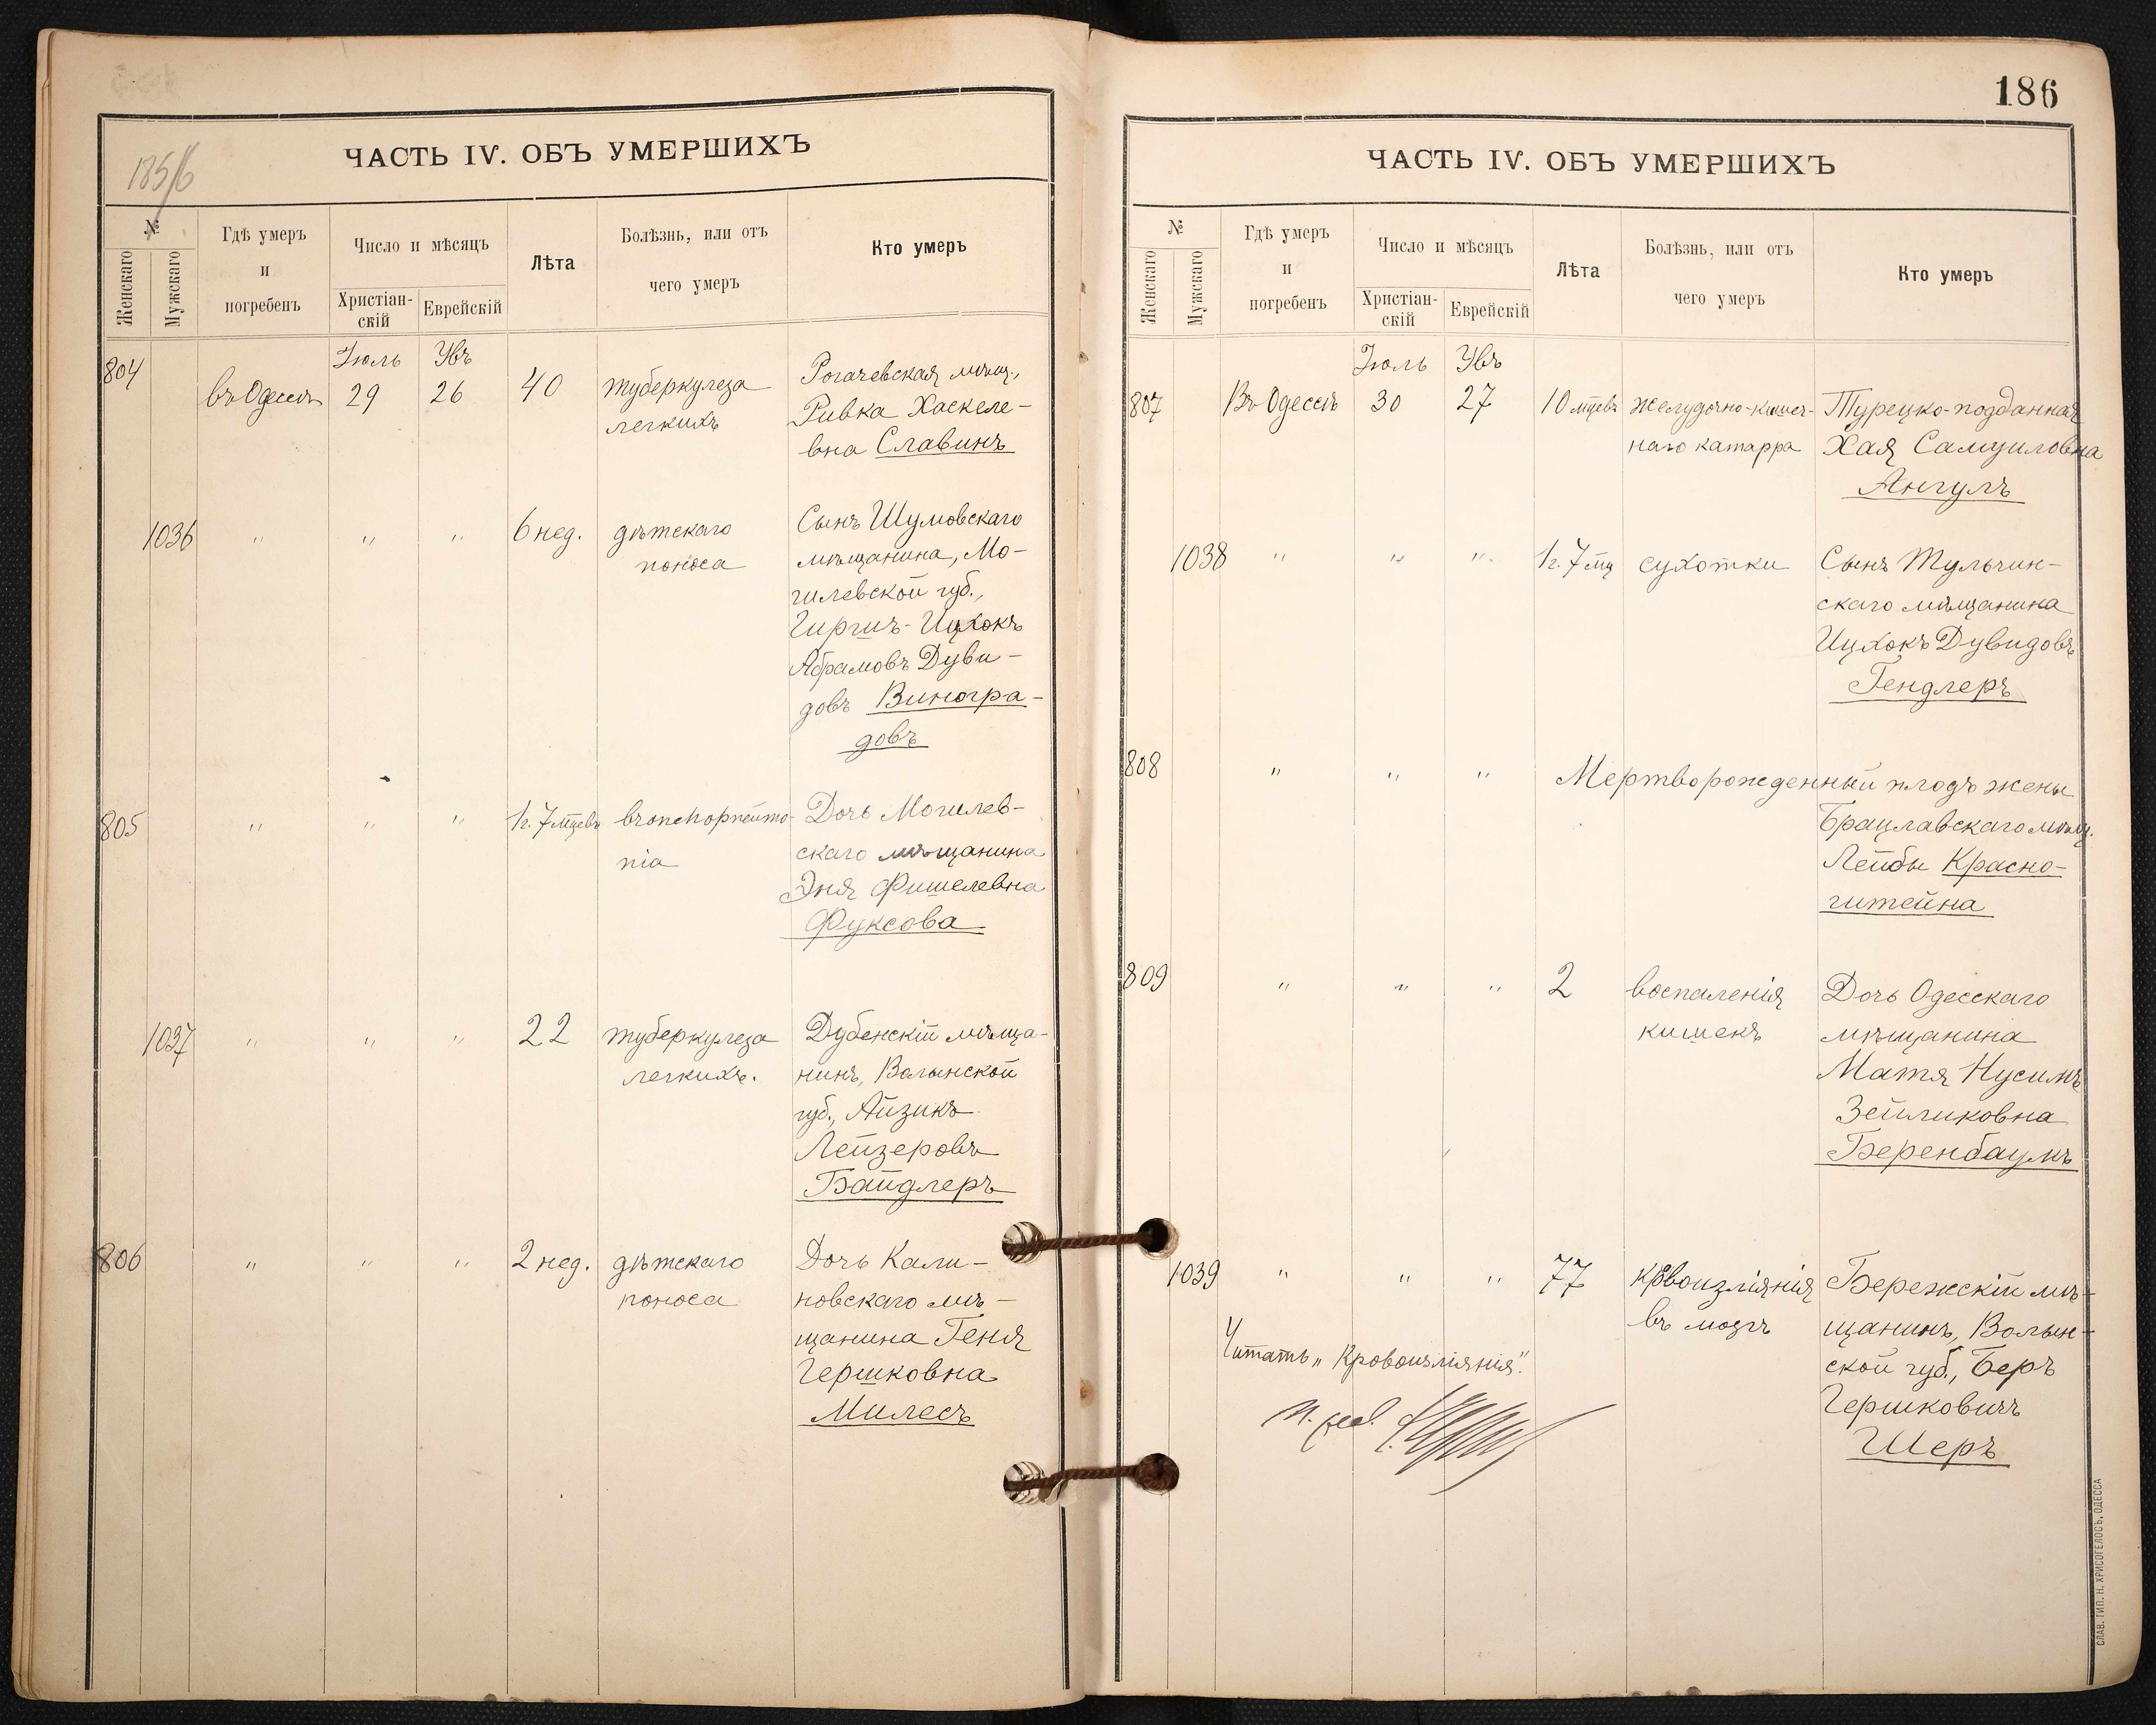 185/6
ЧАСТЬ IV. ОБЪ УМЕРШИХЪ
№
Женскаго
Мужскаго
Гдѣ умеръ
и
погребенъ
Число и мѣсяцъ
Христіан-
скій
Еврейскій
Лѣта
Болѣзнь, или отъ
чего умеръ
Кто умеръ
Іюль Увъ
804 въ Одессѣ 29 26 40 туберкулеза Рогачевская мѣщ.,
легкихъ Ривка Хаскеле-
вна Славинъ
1036 " " " 6 нед. дѣтскаго Сынъ Шумовскаго
поноса мѣщанина, Мо-
гилевской губ.,
Гиршъ-Ицхокъ
Абрамовъ Дуви-
довъ Виногра-
довъ
805 " " " 1г. 7 мцевъ bronchopneumo- Дочь Могилев-
nia скаго мѣщанина
Эня Фишелевна
Фуксова
1037 " " " 22 туберкулеза Дубенскій мѣща-
легкихъ. нинъ, Волынской
губ., Айзикъ
Лейзеровъ
Байдлеръ
806 " " " 2 нед. дѣтскаго Дочь Кали-
поноса новскаго мѣ-
щанина Геня
Гершковна
Милесъ
186
ЧАСТЬ IV. ОБЪ УМЕРШИХЪ
№
Женскаго
Мужскаго
Гдѣ умеръ
и
погребенъ
Число и мѣсяцъ
Христіан-
скій
Еврейскій
Лѣта
Болѣзнь, или отъ
чего умеръ
Кто умеръ
Іюль Увъ
807 Въ Одессѣ 30 27 10 мцевъ желудочно-кишеч- Турецко-подданная
наго катарра Хая Самуиловна
Ангулъ
1038 " " " 1г. 7 мц сухотки Сынъ Тульчин-
скаго мѣщанина
Ицхокъ Дувидовъ
Гендлеръ
808 " " " Мертворожденный плодъ жены
Брацлавскаго мѣщ.
Лейбы Красно-
штейна
809 " " " 2 воспаленія Дочь Одесскаго
кишекъ мѣщанина
Матя Нусимъ
Зейликовна
Беренбаумъ
1039 " " " 77 кровоизліянія Бережскій мѣ-
въ мозгъ щанинъ, Волын-
ской губ., Беръ
Гершковичъ
Шеръ
Читать „Кровоизліянія".
СЛАВ. ТИП. Н. ХРИСОГЕЛОСЪ, ОДЕССА